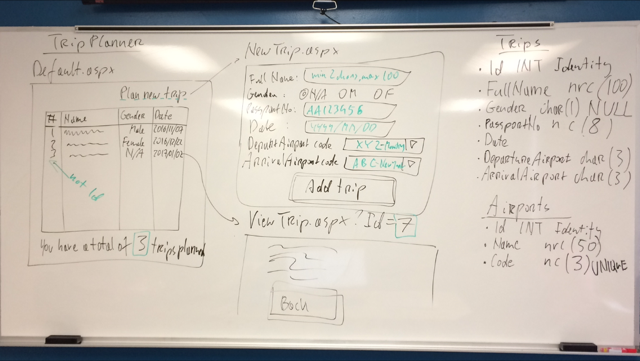 Trip Planner
Default.aspx
Plan new trip
# Name Gender Date
1 Male
2 Female
3 N/A
not Id
You have a total of 3 trips planned
NewTrip.aspx
Full Name: min 2 chars, max 100
Gender: N/A M F
Passport No: AA123456
Date: YYYY/MM/DD
Depart Airport code XYZ-
Arrival Airport code ABC-
Add trip
ViewTrip.aspx?Id=7
Back
Trips
• Id INT Identity
• FullName nvc (100)
• Gender char(1) NULL
• PassportNo nc (8)
• Date
• DepartureAirport char(3)
• ArrivalAirport char(3)
Airports
• Id INT Identity
• Name nvc (50)
• Code nc (3) UNIQUE